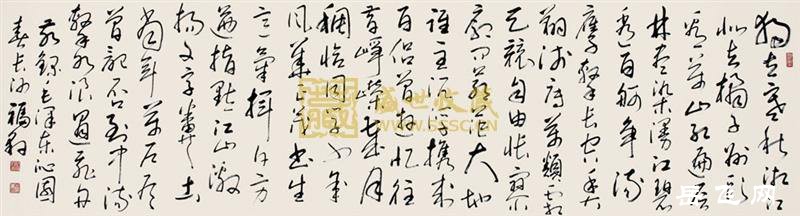 独立寒秋湘江
北去橘子洲头
看万山红遍层
林尽染漫江碧
透百舸争流
鹰击长空鱼
翔浅底万类霜
天竞自由怅寥
廓问苍茫大地
谁主沉浮携来
百侣曾游忆往
昔峥嵘岁月
稠恰同学少年
风华正茂书生
意气挥斥方
遒指点江山激
扬文字粪土
当年万户侯
曾记否到中流
击水浪遏飞舟
敬录毛泽东沁园
春长沙
盛世收藏
sssc.cn
岳飞网